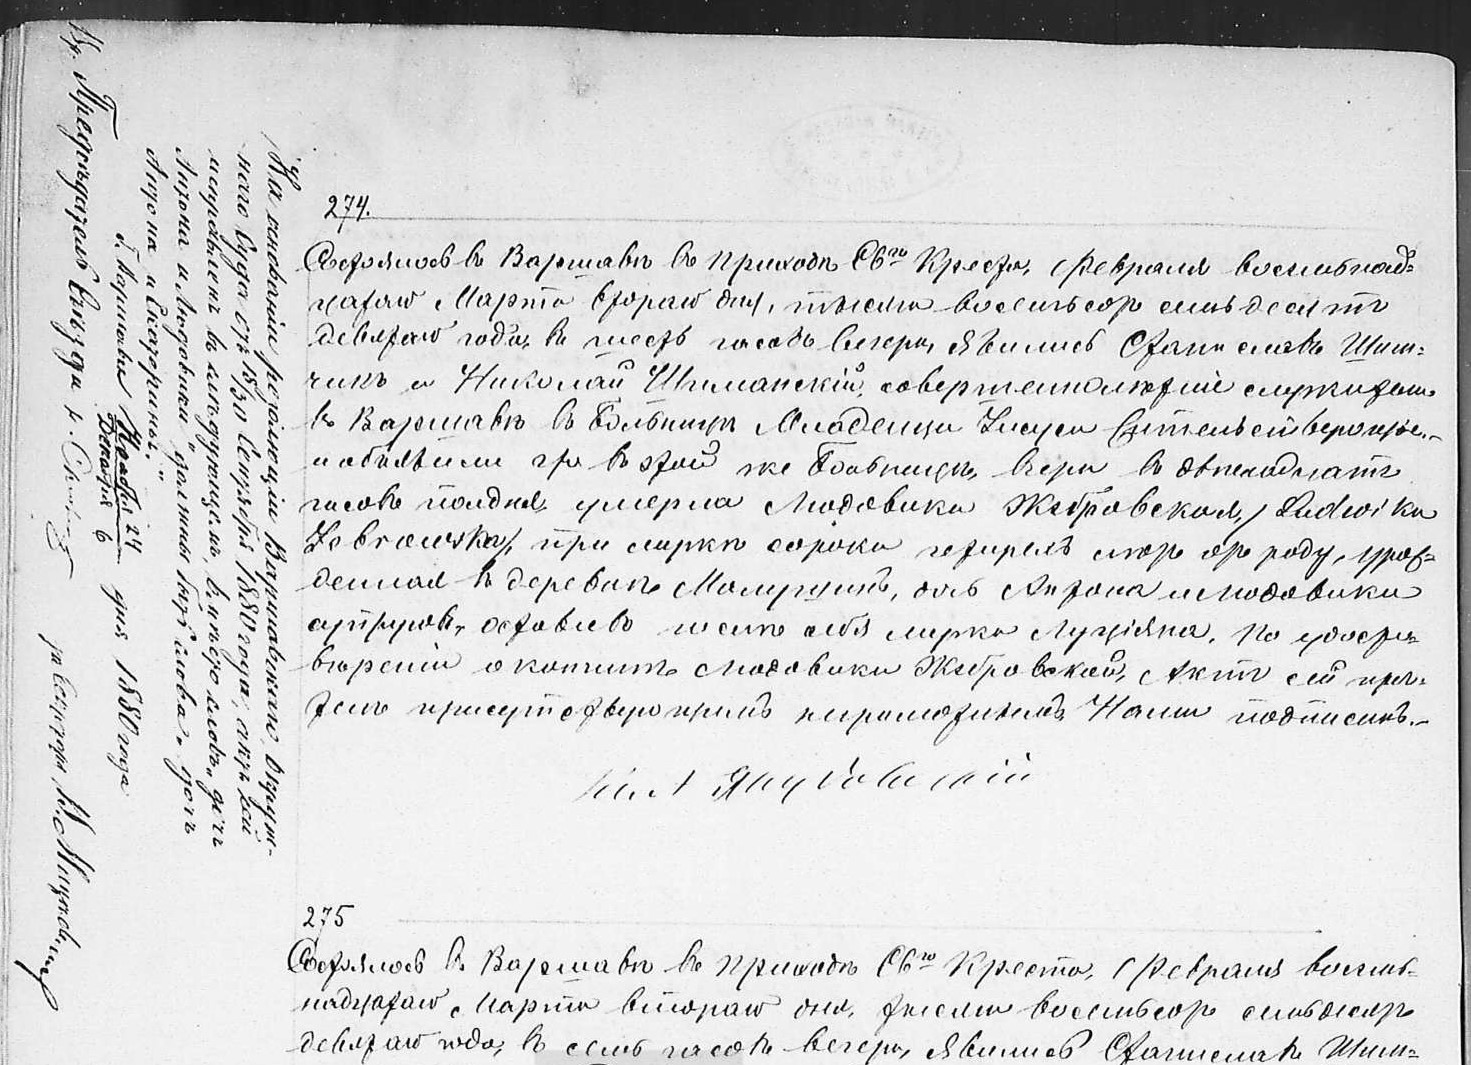 274.
Состоялось в Варшаве в приходе Св.го Креста, Февраля восемнад=
цатаго Марта втораго дня, тысяча восемьсот семьдесят
девятаго года, в шесть часов вечера, явились Станислав Шим=
чик и Николай Шиманскій, совершеннолетніе служители
в Варшаве в Больнице Младенца Іисуса жительствующіе
и объявили что в этой же Больнице, вчера в двенадцать
часов полдня, умерла Людовика Жебровская, /Ludwika
Żebrowska/, при мужу сорока четырех лет от роду, урож=
денная в деревне дочь Антона и Людовики
супругов, оставив после себя мужа Луціяна. По удосто=
вереніи о кончине Людовики Жебровской, Акт сей про=
чтен присутствующим неграмотным Нами подписан.
275
Состоялось в Варшаве в приходе Св.го Креста, Февраля восем=
надцатаго Марта втораго дня, тысяча восемьсот семьдесят
девятаго года, в семь часов вечера, явились Станислав Шим=
На основаніи резолюціи Варшавскаго Окруж=
наго Суда от 18/30 Сентября 1880 года, акт сей
исправлен в следующем, вместо слов „дочь
Антона и Людовики" должны быть слова „дочь
Антона и Екатерины".
г. Варшава Ноября 24 Декабря 6 дня 1880 года
Председатель Съезда
за Секретаря